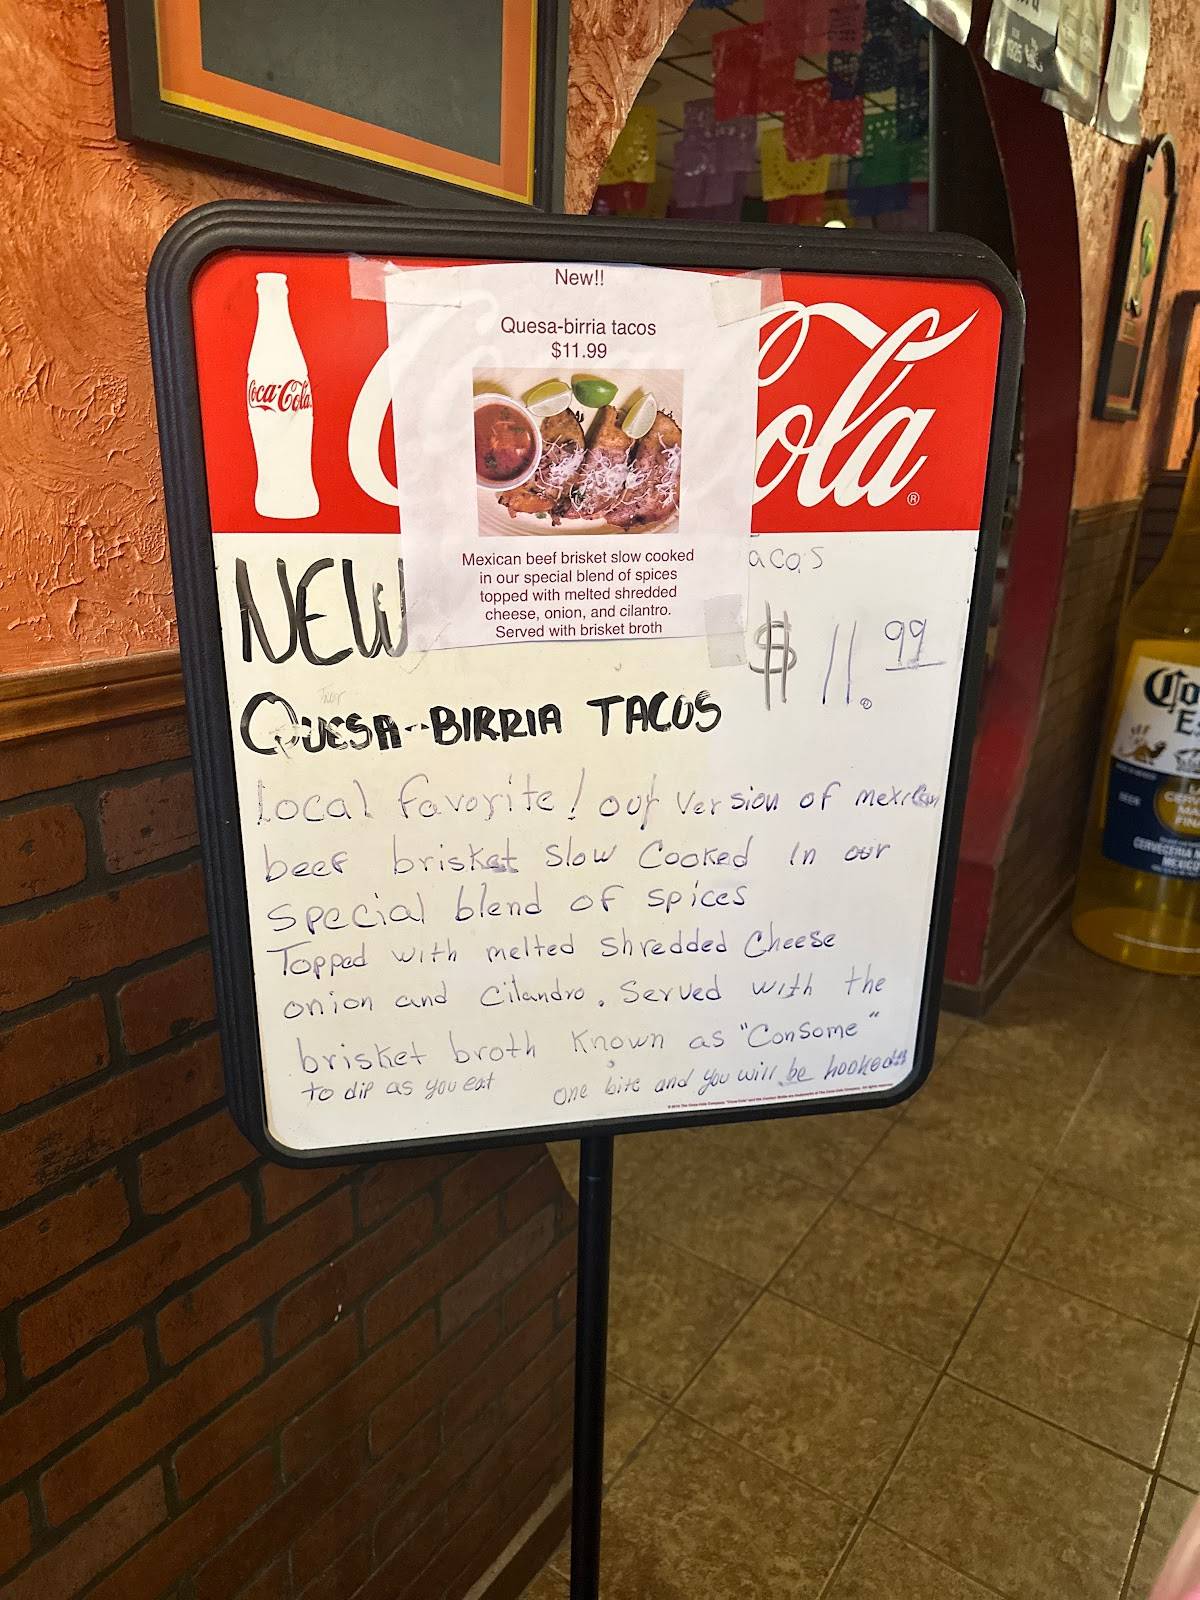 New!!
Quesa-birria tacos
$11.99
Coca-Cola
Cola
®
Mexican beef brisket slow cooked
in our special blend of spices
topped with melted shredded
cheese, onion, and cilantro.
Served with brisket broth
acos
NEW
$11.99
QUESA-BIRRIA TACOS
Local favorite! our version of mexican
beef brisket slow cooked in our
special blend of spices
Topped with melted shredded Cheese
onion and Cilandro. Served with the
brisket broth known as "Consome"
to dip as you eat
one bite and you will be hooked!!